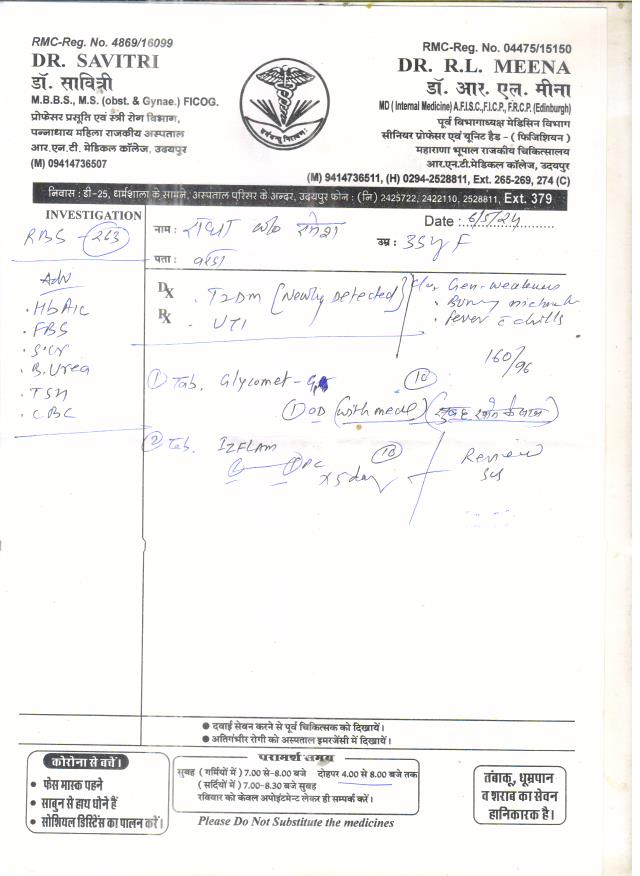 RMC-Reg. No. 4869/16099
DR. SAVITRI
डॉ. सावित्री
M.B.B.S., M.S. (obst. & Gynae.) FICOG.
प्रोफेसर प्रसूति एवं स्त्री रोग विभाग,
पन्नाधाय महिला राजकीय अस्पताल
आर.एन.टी. मेडिकल कॉलेज, उदयपुर
(M) 09414736507
RMC-Reg. No. 04475/15150
DR. R.L. MEENA
डॉ. आर. एल. मीना
MD ( Internal Medicine) A.F.I.S.C.,F.I.C.P., F.R.C.P. (Edinburgh)
पूर्व विभागाध्यक्ष मेडिसिन विभाग
सीनियर प्रोफेसर एवं यूनिट हैड - ( फिजिशियन )
महाराणा भूपाल राजकीय चिकित्सालय
आर.एन.टी.मेडिकल कॉलेज, उदयपुर
(M) 9414736511, (H) 0294-2528811, Ext. 265-269, 274 (C)
निवास : डी-25, धर्मशाला के सामने, अस्पताल परिसर के अन्दर, उदयपुर फोन : (नि) 2425722, 2422110, 2528811, Ext. 379
INVESTIGATION
RBS - 263
Adv
. HbA1c
. FBS
. S.Cr
. B. Urea
. TSH
. CBC
नाम : राधा w/o रमेश
Date : 6/5/24
उम्र : 35y F
पता :
Dx . T2DM [Newly Detected]
Rx . UTI
c/o, Gen-weakness
. Burning
. fever c chills
160/96
① Tab. Glycomet - (10)
① OD (with meal)
② Tab. IZFLAM (10)
PC
x 5 day
Review
● दवाई सेवन करने से पूर्व चिकित्सक को दिखायें।
● अतिगंभीर रोगी को अस्पताल इमरजेंसी में दिखायें।
कोरोना से बचें।
• फेस मास्क पहने
• साबुन से हाथ धोने हैं
• सोशियल डिस्टेंस का पालन करें।
परामर्श समय
सुबह ( गर्मियों में ) 7.00 से-8.00 बजे दोहपर 4.00 से 8.00 बजे तक
( सर्दियों में ) 7.00-8.30 बजे सुबह
रविवार को केवल अपोइंटमेन्ट लेकर ही सम्पर्क करें।
Please Do Not Substitute the medicines
तंबाकू, धूम्रपान
व शराब का सेवन
हानिकारक है।